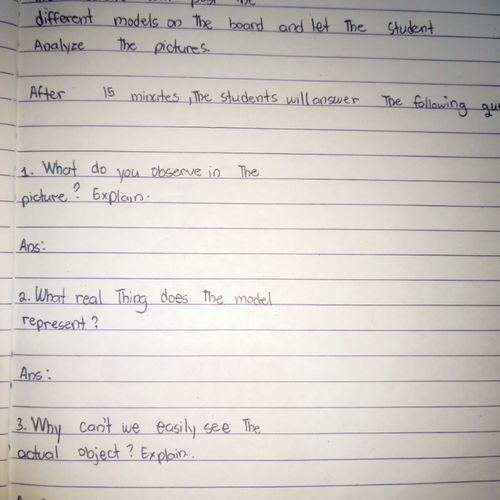 different models on The board and let The student
Analyze The pictures.
After 15 minutes, The students will answer The following
1. What do you observe in The
picture? Explain.
Ans:
2. What real Thing does The model
represent?
Ans:
3. Why can't we easily see The
actual object? Explain.